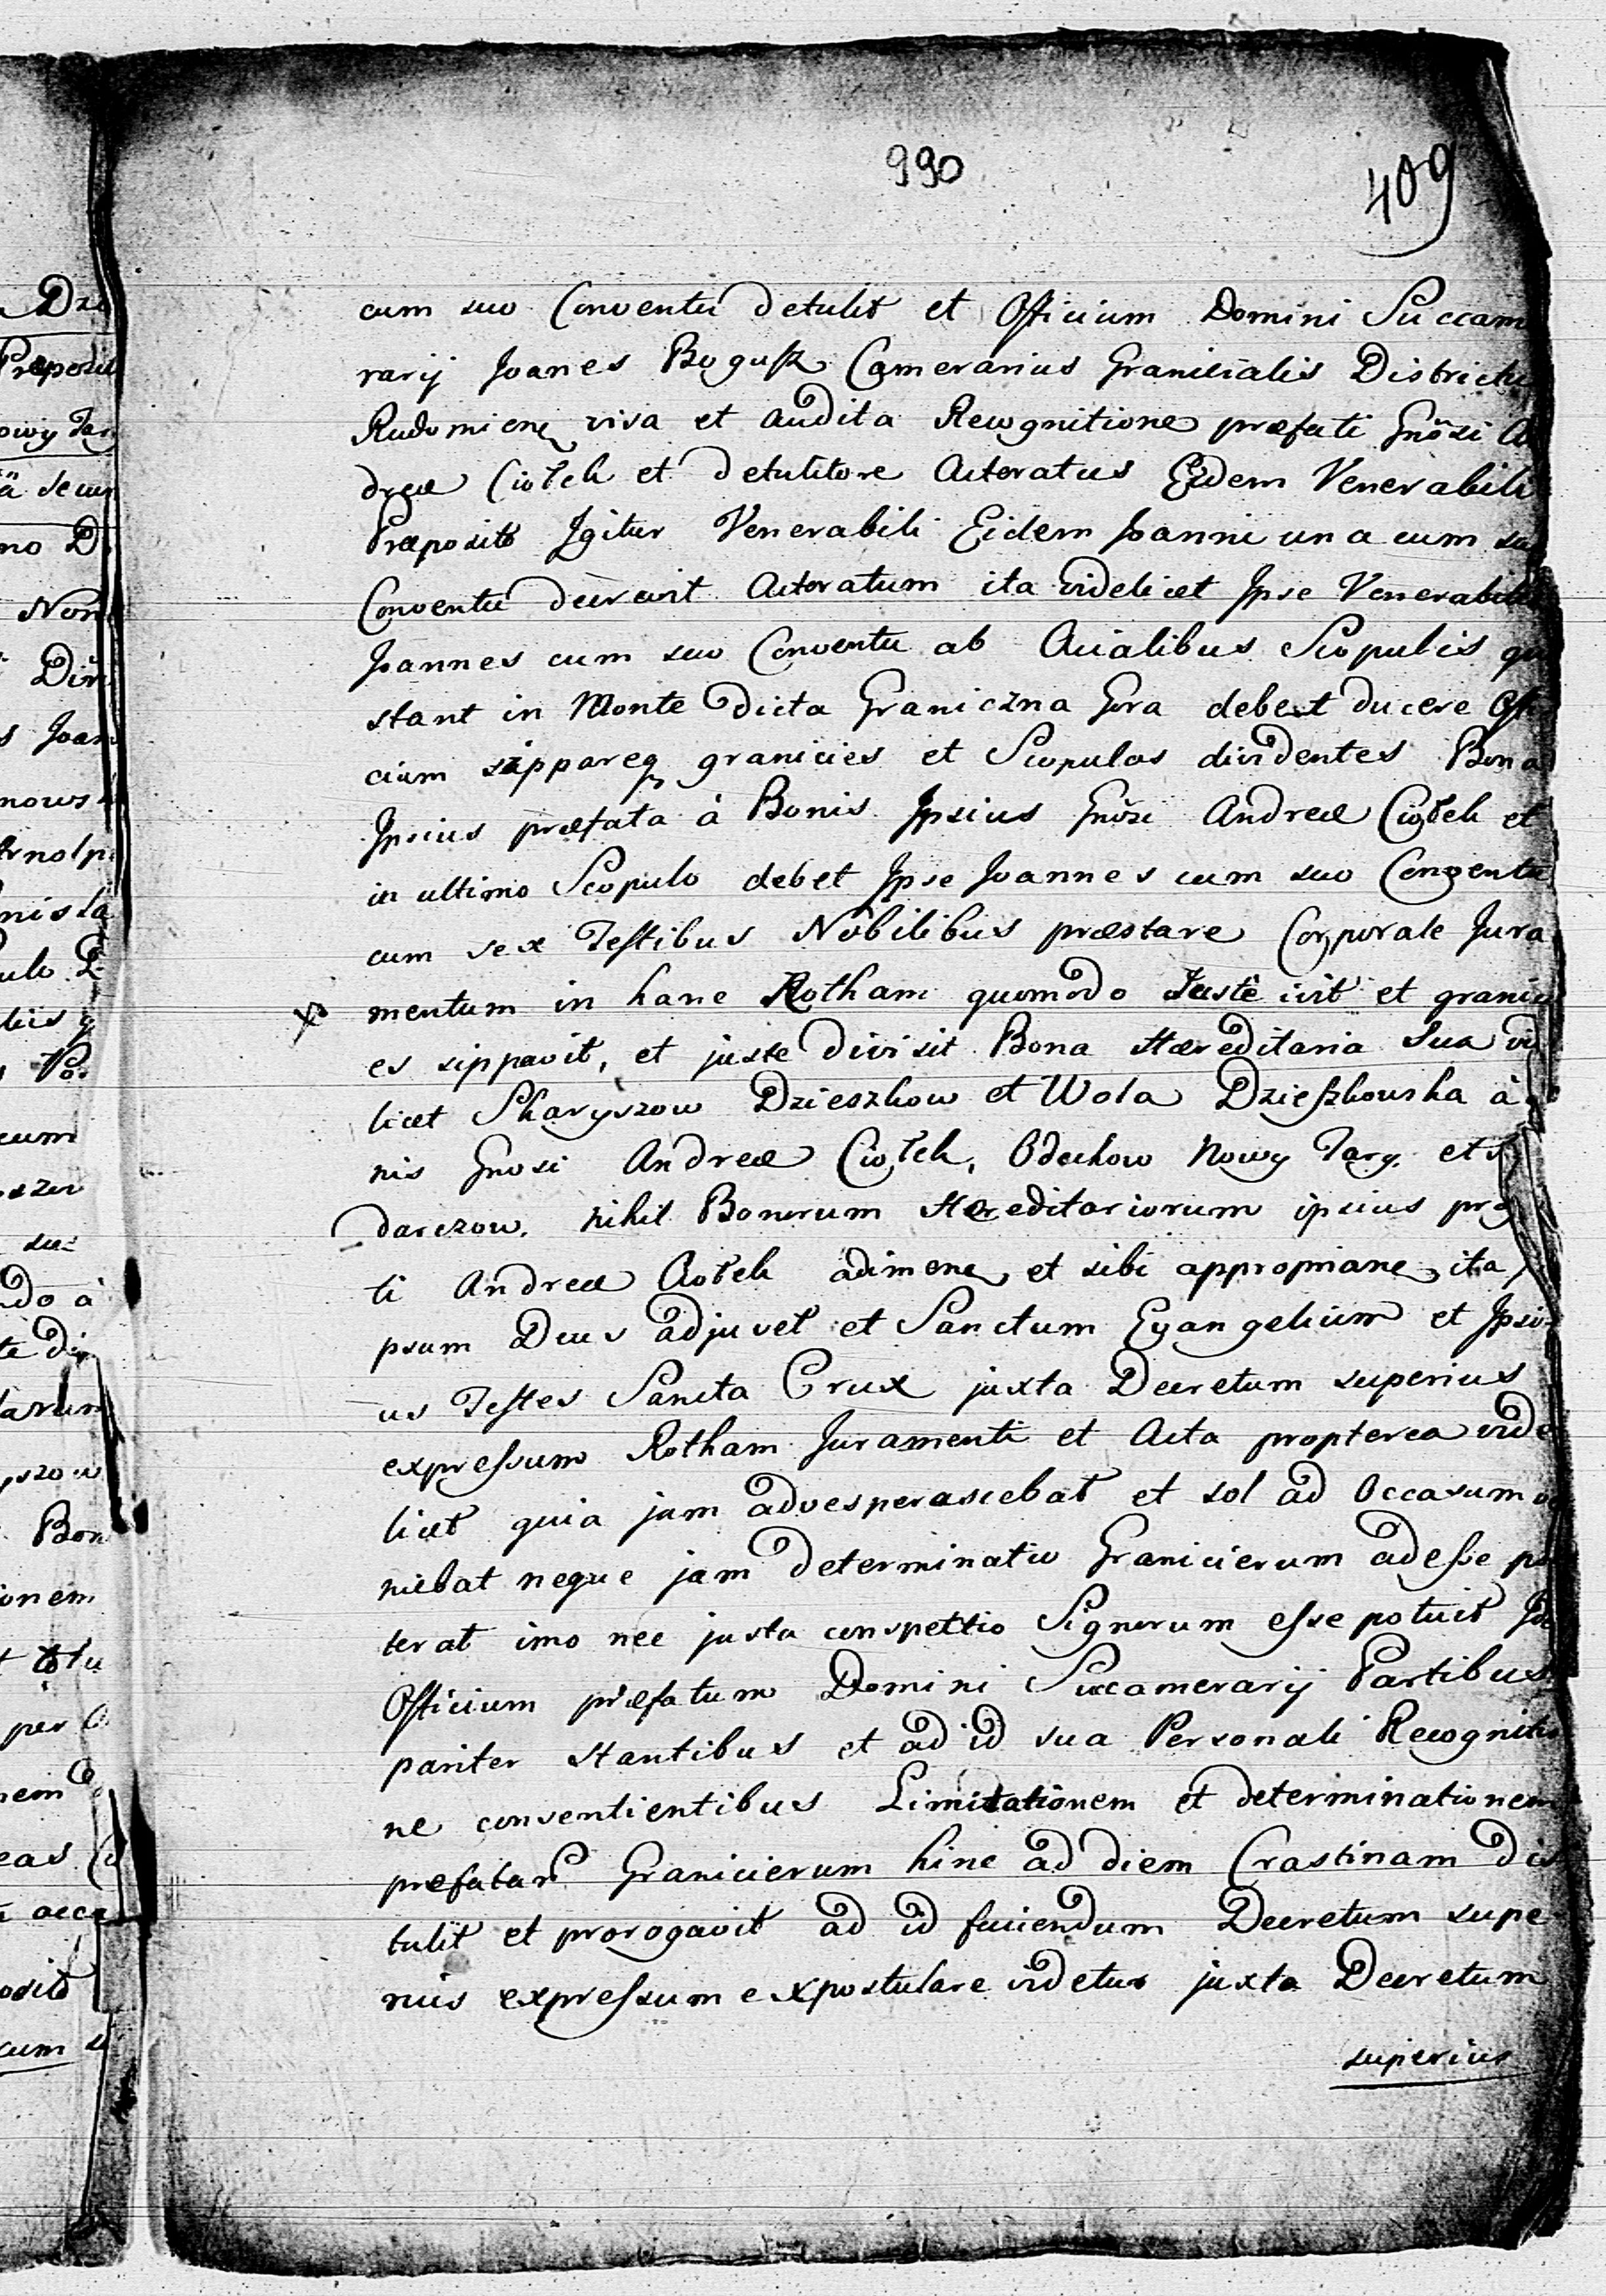 990
409
cum suo Conventu detulit et Officium Domini Succam
rarij Joanes Bogusz Camerarius Granicialis Districtu
Radomieñ visa et audita Recognitione præfati Gnõsi A
dreæ Ciołek et detulitore Actoratus Eidem Venerabili
Præposito Igitur Venerabili Eidem Joanni una cum su
Conventu decrevit Actoratum ita videlicet Ipse Venerabilis
Joannes cum suo Conventu ab Acialibus Scopulis qu
stant in Monte dicta Graniczna Gora debet ducere Offi
cium sippareq granicies et Scopulos dividentes Bona
Ipsius præfata à Bonis Ipsius Gnõsi Andreæ Ciołek et
in ultimo Scopulo debet Ipse Joannes cum suo Conventu
cum sex Testibus Nobilibus præstare Corporale Jura
mentum in hanc Rotham quomodo Juste ivit et granici
es sippavit, et juste divisit Bona Hæreditaria sua vi
licet Skaryszow Dzieszkow et Wola Dzieszkowska à
nis Gnosi Andreæ Ciołek, Odechow Nowy Targ. et
darczow. nihil Bonorum Hæreditariorum ipsius præ
ti Andreæ Ciołek adimeñ et sibi appropriañ, ita
psum Deus adjuvet et Sanctum Evangelium et Ipsi
us Testes Sancta Crux juxta Decretum superius
expressum Rotham Juramenti et Acta propterea vide
licet quia jam advesperascebat et sol ad Occasum ve
niebat neque jam determinatio Granicierum adesse po
terat imo nec justa conspectio Signorum esse potuit
Officium præfatum Domini Succamerarij Partibus
pariter stantibus et ad id sua Personali Recognitio
ne consentientibus Limitationem et determinationem
præfatar Granicierum hinc ad diem Crastinam dis
tulit et prorogavit ad id faciendum Decretum supe
rius expressum expostulare videtur juxta Decretum
superius